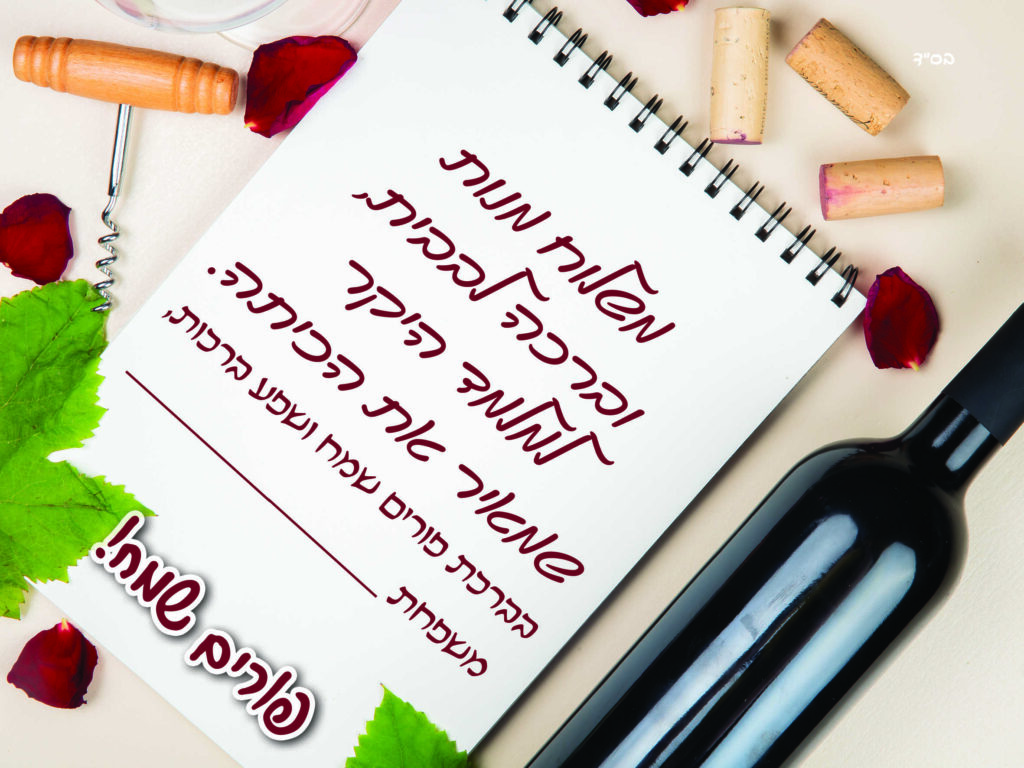 בס"ד
משלוח מנות
וברכה לבבית,
למלמד היקר
שמאיר את הכיתה.
בברכת פורים שמח ושפע ברכות,
משפחת
פורים שמח!